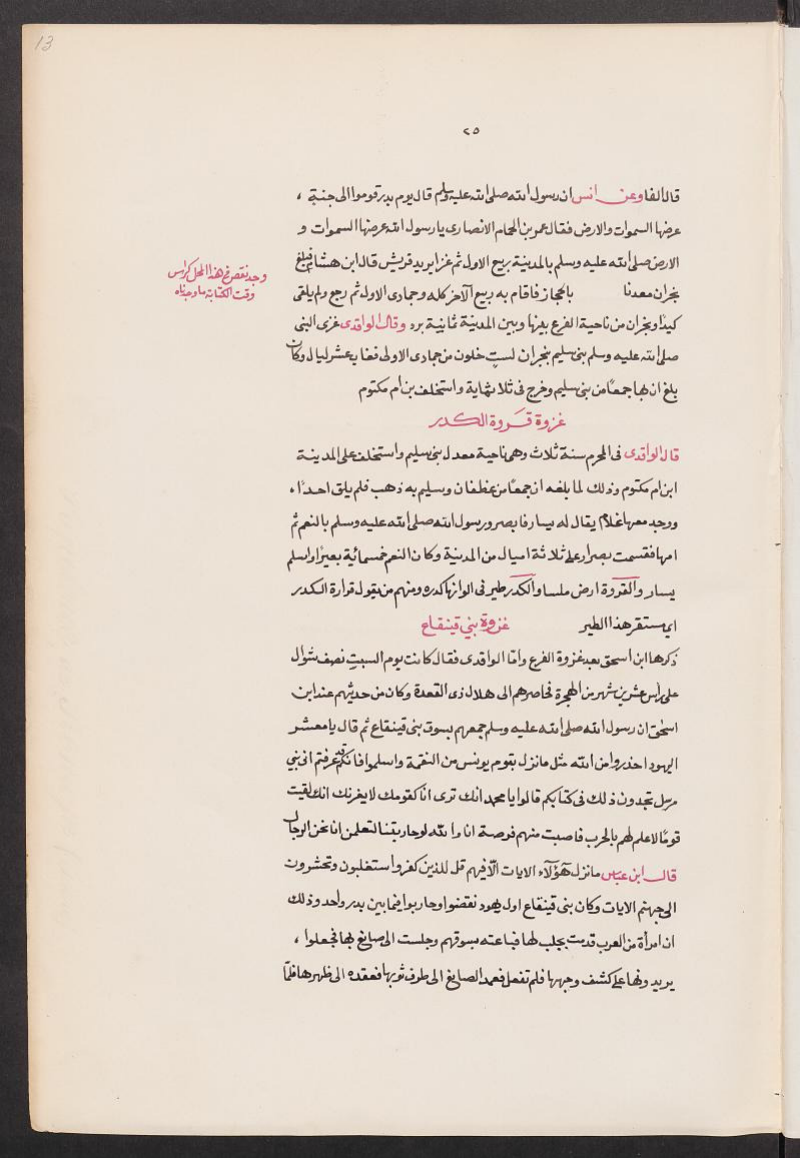 13
٢٥
قال الفا وعن انس ان رسول الله صلى الله عليه وسلم قال يوم بدر قوموا الى جنة ،
عرضها السموات والارض فقال عمر بن الحام الانصارى يا رسول الله عرضها السموات و
الارض صلى الله عليه وسلم بالمدينة ربيع الاول ثم غزا يريد قريش قال ابن هشام فبلغ
بحران معدنا بالحجاز فاقام به ربيع الآخر كله وجمادى الاول ثم رجع ولم يلقى
وجد نقص فى هذا المحل كراس
وقت الكتابة ما وجدناه
كيدا وبحران من ناحية الفرع بينها وبين المدينة ثمانية برد وقال الواقدى غزى النبى
صلى الله عليه وسلم بنى سليم بنجران لست خلون من جمادى الاولى فغاب عشر ليال وكان
بلغ ان بها جمعًا من بنى سليم وخرج فى ثلاثماية واستخلف بن ام مكتوم
غزوة قروة الكدر
قال الواقدى فى المحرم سنة ثلاث وهى ناحية معدل بنى سليم واستخلف على المدينة
ابن ام مكتوم وذلك لما بلغه ان جمعًا من غطفان وسليم به ذهب فلم يلق احدًا ،
ووجد معها غلام يقال له يسار فابصر ورسول الله صلى الله عليه وسلم بالنعم ثم
امها فقسمت بصرار على ثلاثة اميال من المدينة وكان النعم خمسمائية بعيرا واسلم
يسار والقروة ارض ملسا والكدر طير فى الوانها كدره ومنهم من يقول قرارة الكدر
اى مستقر هذا الطير غزوة بني قينقاع
ذكرها ابن اسحق بعد غزوة الفرع واما الواقدى فقال كانت يوم السبت نصف شوال
على راس عشرين شهر من الهجرة فحاصرهم الى هلال ذى القعدة وكان من حديثهم عند ابن
اسحق ان رسول الله صلى الله عليه وسلم جمعهم بسوق بنى قينقاع ثم قال يا معشر
اليهود احذروا من الله مثل ما نزل بقوم يونس من النقمة واسلموا فانكم قد عرفتم انى نبي
مرسل تجدون ذلك فى كتابكم قالوا يا محمد انك ترى انا كقومك لا يغرنك انك لقيت
قومًا لا علم لهم بالحرب فاصبت منهم فرصة انا والله لو حاربتنا لتعلمن انا نحن الرجال
قال ابن عباس ما نزل هؤلآء الايات الا فيهم قل للذين كفروا ستغلبون وتحشرون
الى جهنم الايات وكان بنى قينقاع اول يهود نقضوا وحاربوا فيما بين بدر واحد وذلك
ان امرأة من العرب قدمت بجلب لها فباعته بسوقهم وجلست الى صايغ بها فجعلوا ،
يريدونها على كشف وجهها فلم تفعل فعمد الصايغ الى طرف ثوبها فعقده الى ظهرها فلمّا